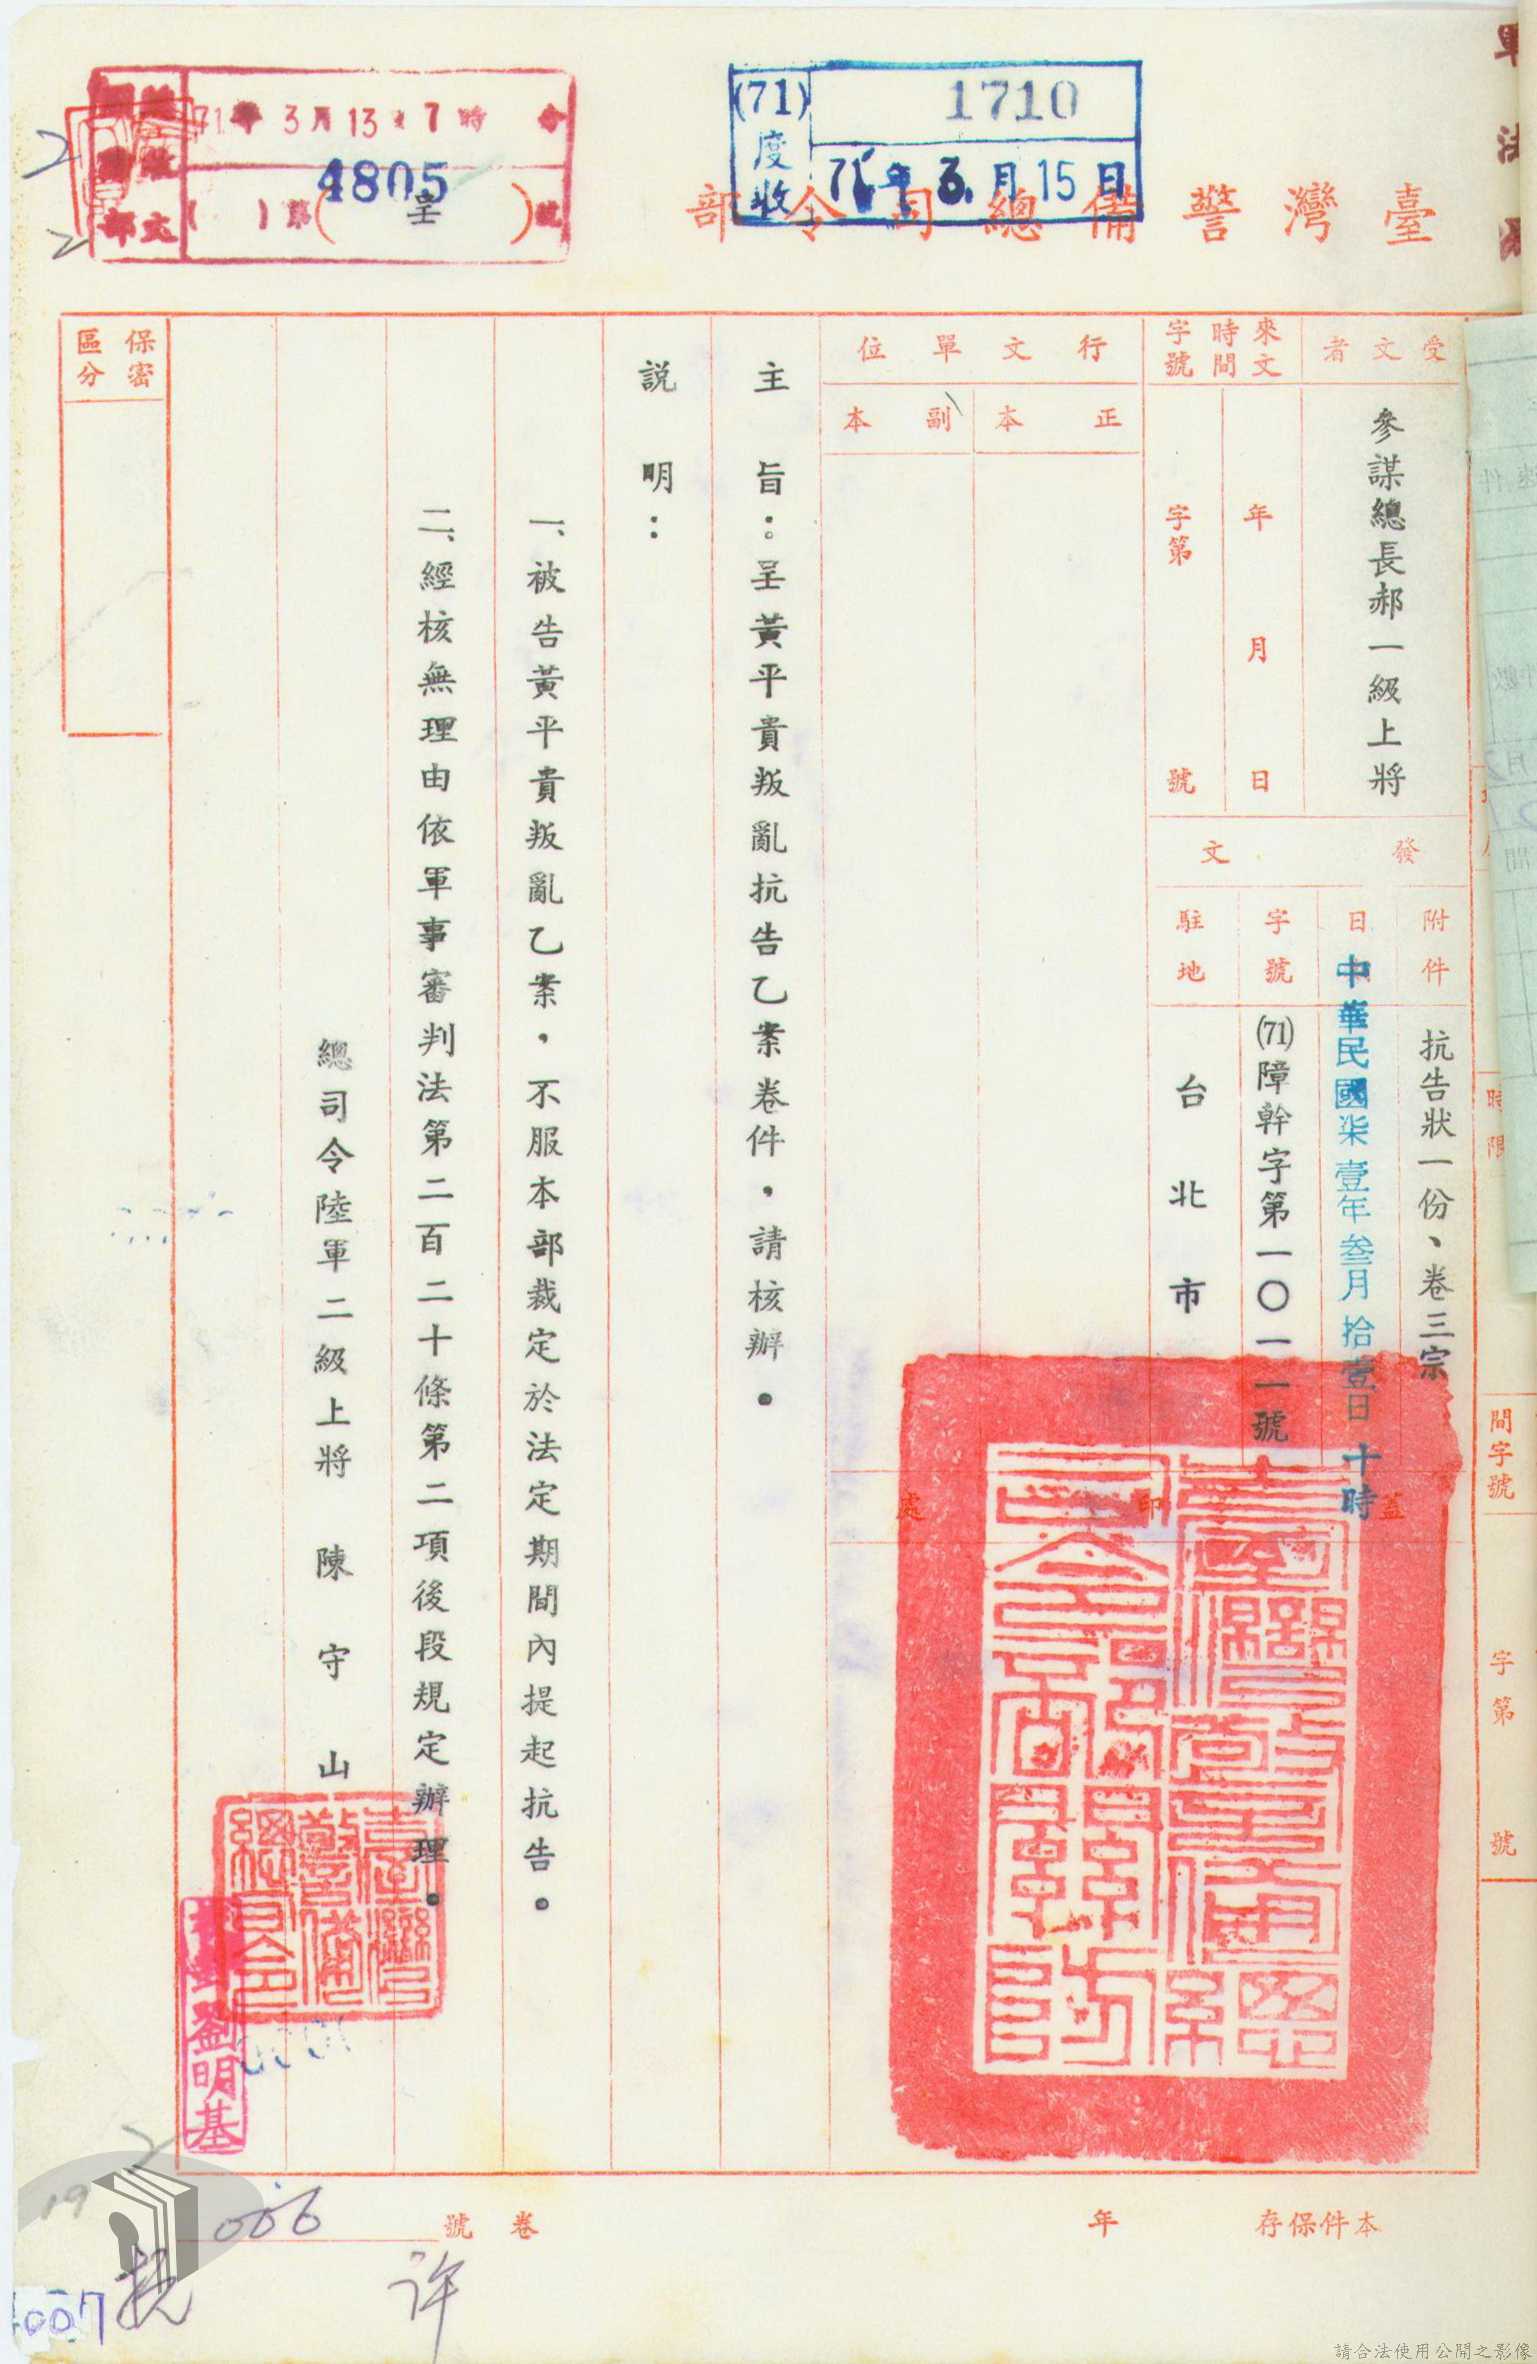 臺灣警備總司令部
(71)度收
1710
71年3月15日
71年3月13 7時
4805
(呈)
第 號
受文者
參謀總長郝一級上將
來文時間
字號
年 月 日
字第 號
行文單位
正本
副本
發文
附件
抗告狀一份、卷三宗
日
中華民國柒壹年叁月拾壹日十時
字號
(71)障幹字第一〇一一號
駐地
台北市
蓋印處
主旨：呈黃平貴叛亂抗告乙案卷件，請核辦。
說明：
一、被告黃平貴叛亂乙案，不服本部裁定於法定期間內提起抗告。
二、經核無理由依軍事審判法第二百二十條第二項後段規定辦理。
總司令陸軍二級上將 陳守山
臺灣警備總司令
劉明基
保密區分
時限
間字號
字第 號
本件保存 年
卷 號
006
許
007
19
請合法使用公開之影像